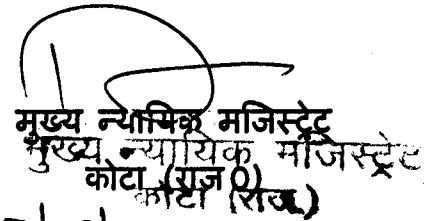 मुख्य न्यायिक मजिस्ट्रेट
मुख्य न्यायिक मजिस्ट्रेट
कोटा (राज0)
कोटा (राज.)